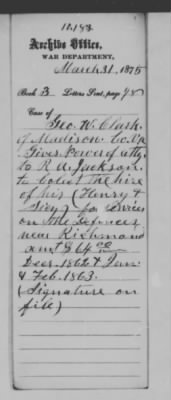 12,183
Archive Office,
WAR DEPARTMENT,
March 31, 1875
Book B Letters Sent, page 98
Case of
Geo. W. Clark,
of Madison Co. Va
Gives Power of atty.
to R. W. Jackson,
to Colect the hire
of his (Henry &
for Service
on the Defences
near Richmond
amt $64.00
Decr. 1862 & Jan.
& Feb. 1863.
(Signature on
file)